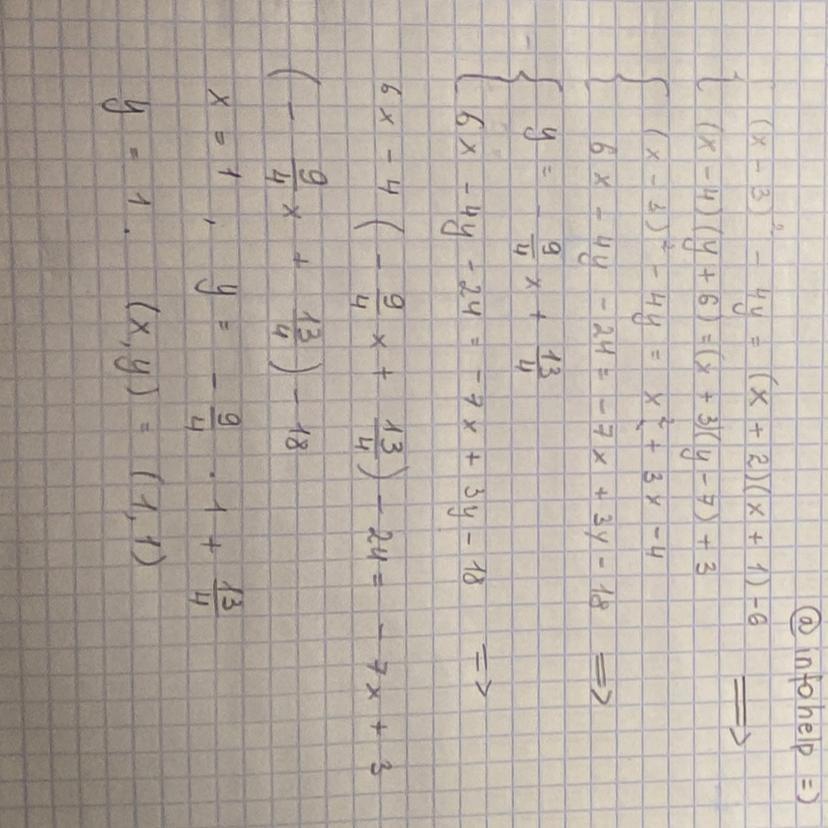 @infohelp =)
(x - 3)² - 4y = (x + 2)(x + 1) - 6
(x - 4)(y + 6) = (x + 3)(y - 7) + 3 =>
(x - 3)² - 4y = x² + 3x - 4
6x - 4y - 24 = -7x + 3y - 18 =>
y = - 9/4 x + 13/4
6x - 4y - 24 = -7x + 3y - 18 =>
6x - 4 ( - 9/4 x + 13/4 ) - 24 = - 7x + 3
( - 9/4 x + 13/4 ) - 18
x = 1 , y = - 9/4 · 1 + 13/4
y = 1 . (x, y) = (1, 1)